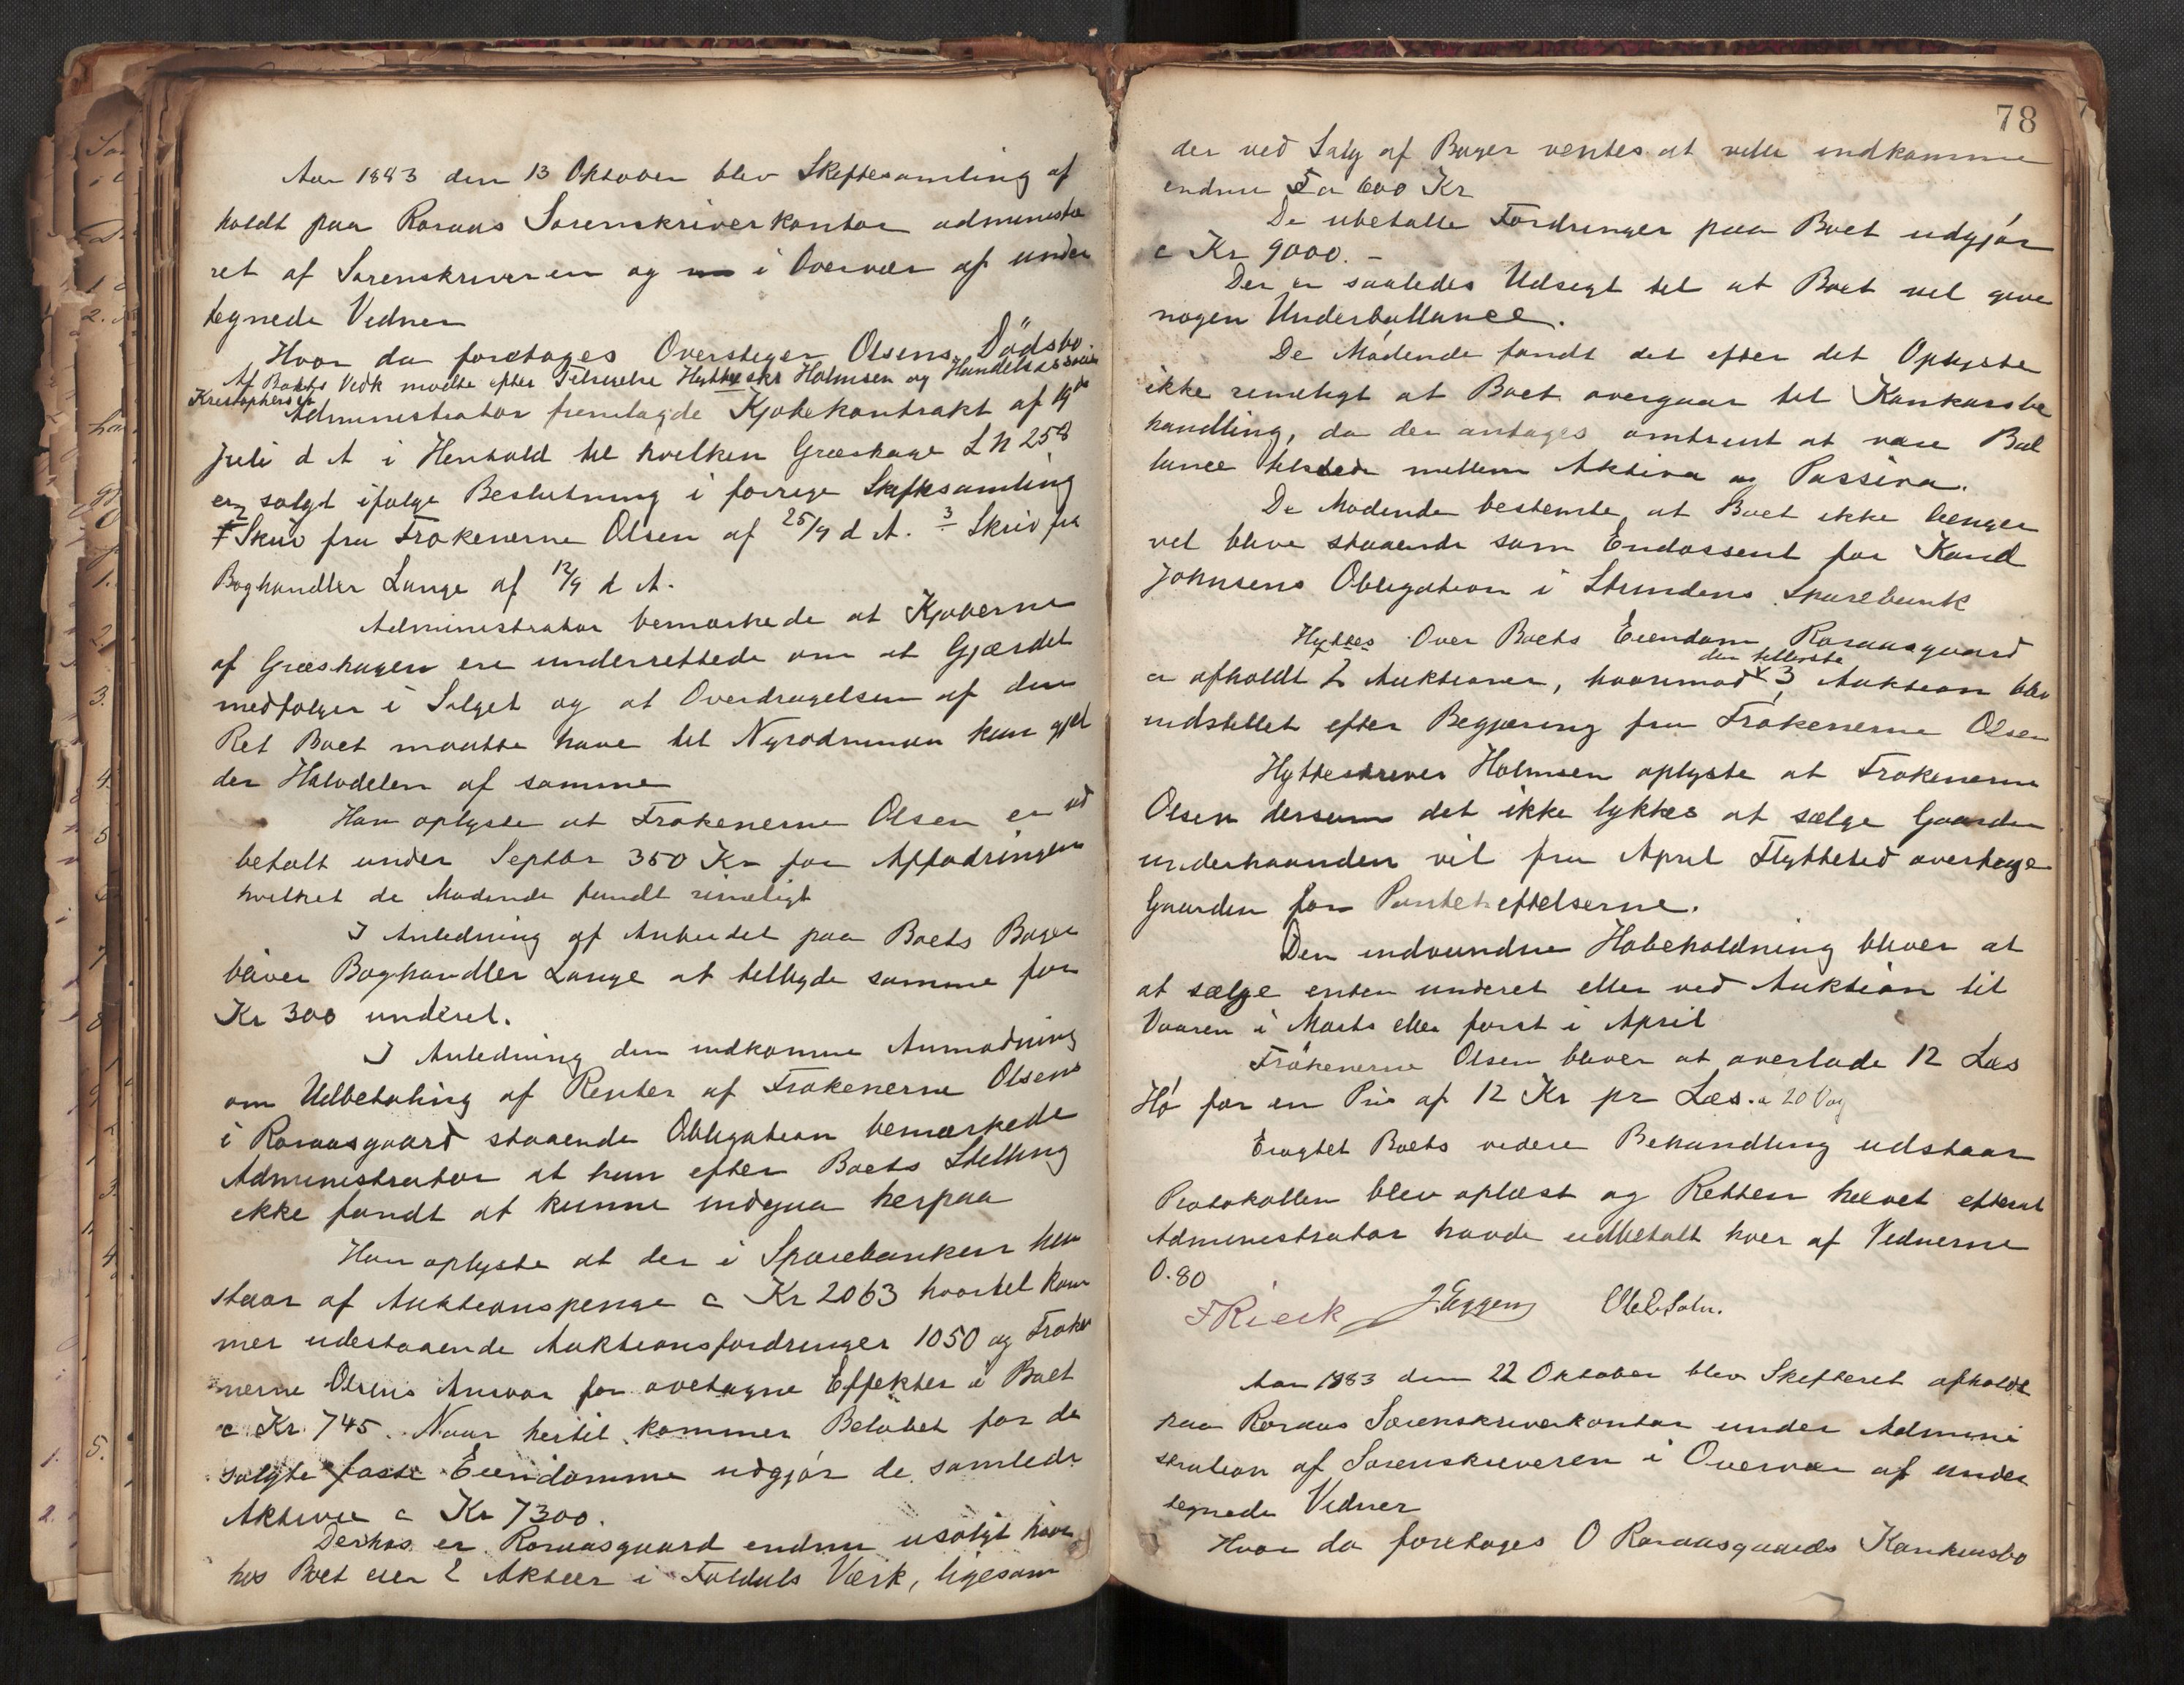 Aar 1883 den 13 Oktober blev Skiftesamling af
holdt paa Røraas Sorenskriverkontor administe
ret af Sorenskriveren og i Overvær af under
tegnede Vidner
Hvor da foretoges Overstiger Olsens Dødsbo.
Af Boets Vedk mødte efter Tilsigelse Hytteskr Holmsen og Handelsass
Kristophersen
Administrator fremlagde Kjøbekontrakt af 19de
Juli d A i Henhold til hvilken Græshage L N 258
er solgt ifølge Beslutning i forrige Skiftesamling
2 Skriv fra Frøkenerne Olsen af 25/9 d A. 3 Skriv fra
Boghandler Lange af 12/9 d A.
Administrator bemærkede at Kjøberne
af Græshagen ere underrettede om at Gjærdet
medfølger i Salget og at Overdragelsen af den
Ret Boet maatte have til Nyrødningen kun gjæl
der Halvdelen af samme
Han oplyste at Frøkenerne Olsen er ud
betalt under Septbr 350 Kr for Affodringen
hvilket de Mødende fandt rimeligt
I Anledning af Anbudet paa Boets Bøger
bliver Boghandler Lange at tilbyde samme for
Kr 300 underet.
I Anledning den indkomne Anmodning
om Udbetaling af Renter af Frøkenerne Olsens
i Røraasgaard staaende Obligation bemærkede
Administrator at han efter Boets Stilling
ikke fandt at kunne indgaa herpaa
Han oplyste at der i Sparebanken hen
staar af Auktionspenge c Kr 2063 hvortil kom
mer udestaaende Auktionsfordringer 1050 og Frøke
nerne Olsens Ansvar for overtagne Effekter i Boet
c Kr 745. Naar hertil kommer Beløbet for de
solgte faste Eiendomme udgjør de samlede
Aktiva c Kr 7300.
Derhos er Røraasgaard endnu usolgt hvor
hos Boet eier 2 Aktier i Foldals Værk, ligesom
78
der ved Salg af Bøger ventes at ville indkomme
endnu 5 a 600 Kr
De ubetalte Fordringer paa Boet udgjør
c Kr 9000. -
Der er saaledes Udsigt til at Boet vil give
nogen Underballance.
De Mødende fandt det efter det Oplyste
ikke rimeligt at Boet overgaar til Konkursbe
handling, da der antages omtrent at være Bal
lance tilstede mellem Aktiva og Passiva.
De Mødende bestemte at Boet ikke længer
vil blive staaende som Endossent for Kand
Johnsens Obligation i Strindens Sparebank
Hyttes Over Boets Eiendom Røraasgaard
er afholdt 2 Auktioner, hvorimod den tillyste 3 Auktion blev
indstillet efter Begjæring fra Frøkenerne Olsen
Hytteskriver Holmsen oplyste at Frøkenerne
Olsen dersom det ikke lykkes at sælge Gaarden
underhaanden vil fra April Flyttetid overtage
Gaarden for Panteheftelserne.
Den indvundne Høbeholdning bliver at
at sælge enten underet eller ved Auktion til
Vaaren i Marts eller først i April
Frøkenerne Olsen bliver at overlade 12 Læs
Hø for en Pris af 12 Kr pr Læs. a 20 Vog
Eragtet Boets videre Behandling udstaar
Protokollen blev oplæst og Retten hævet efterat
Administrator havde udbetalt hver af Vidnerne
0.80
F Rieck J Eggen
Aar 1883 den 22 Oktober blev Skifteret afholdt
paa Røraas Sorenskriverkontor under Admini
stration af Sorenskriveren i Overvær af under
tegnede Vidner
Hvor da foretoges O Røraasgaards Konkursbo